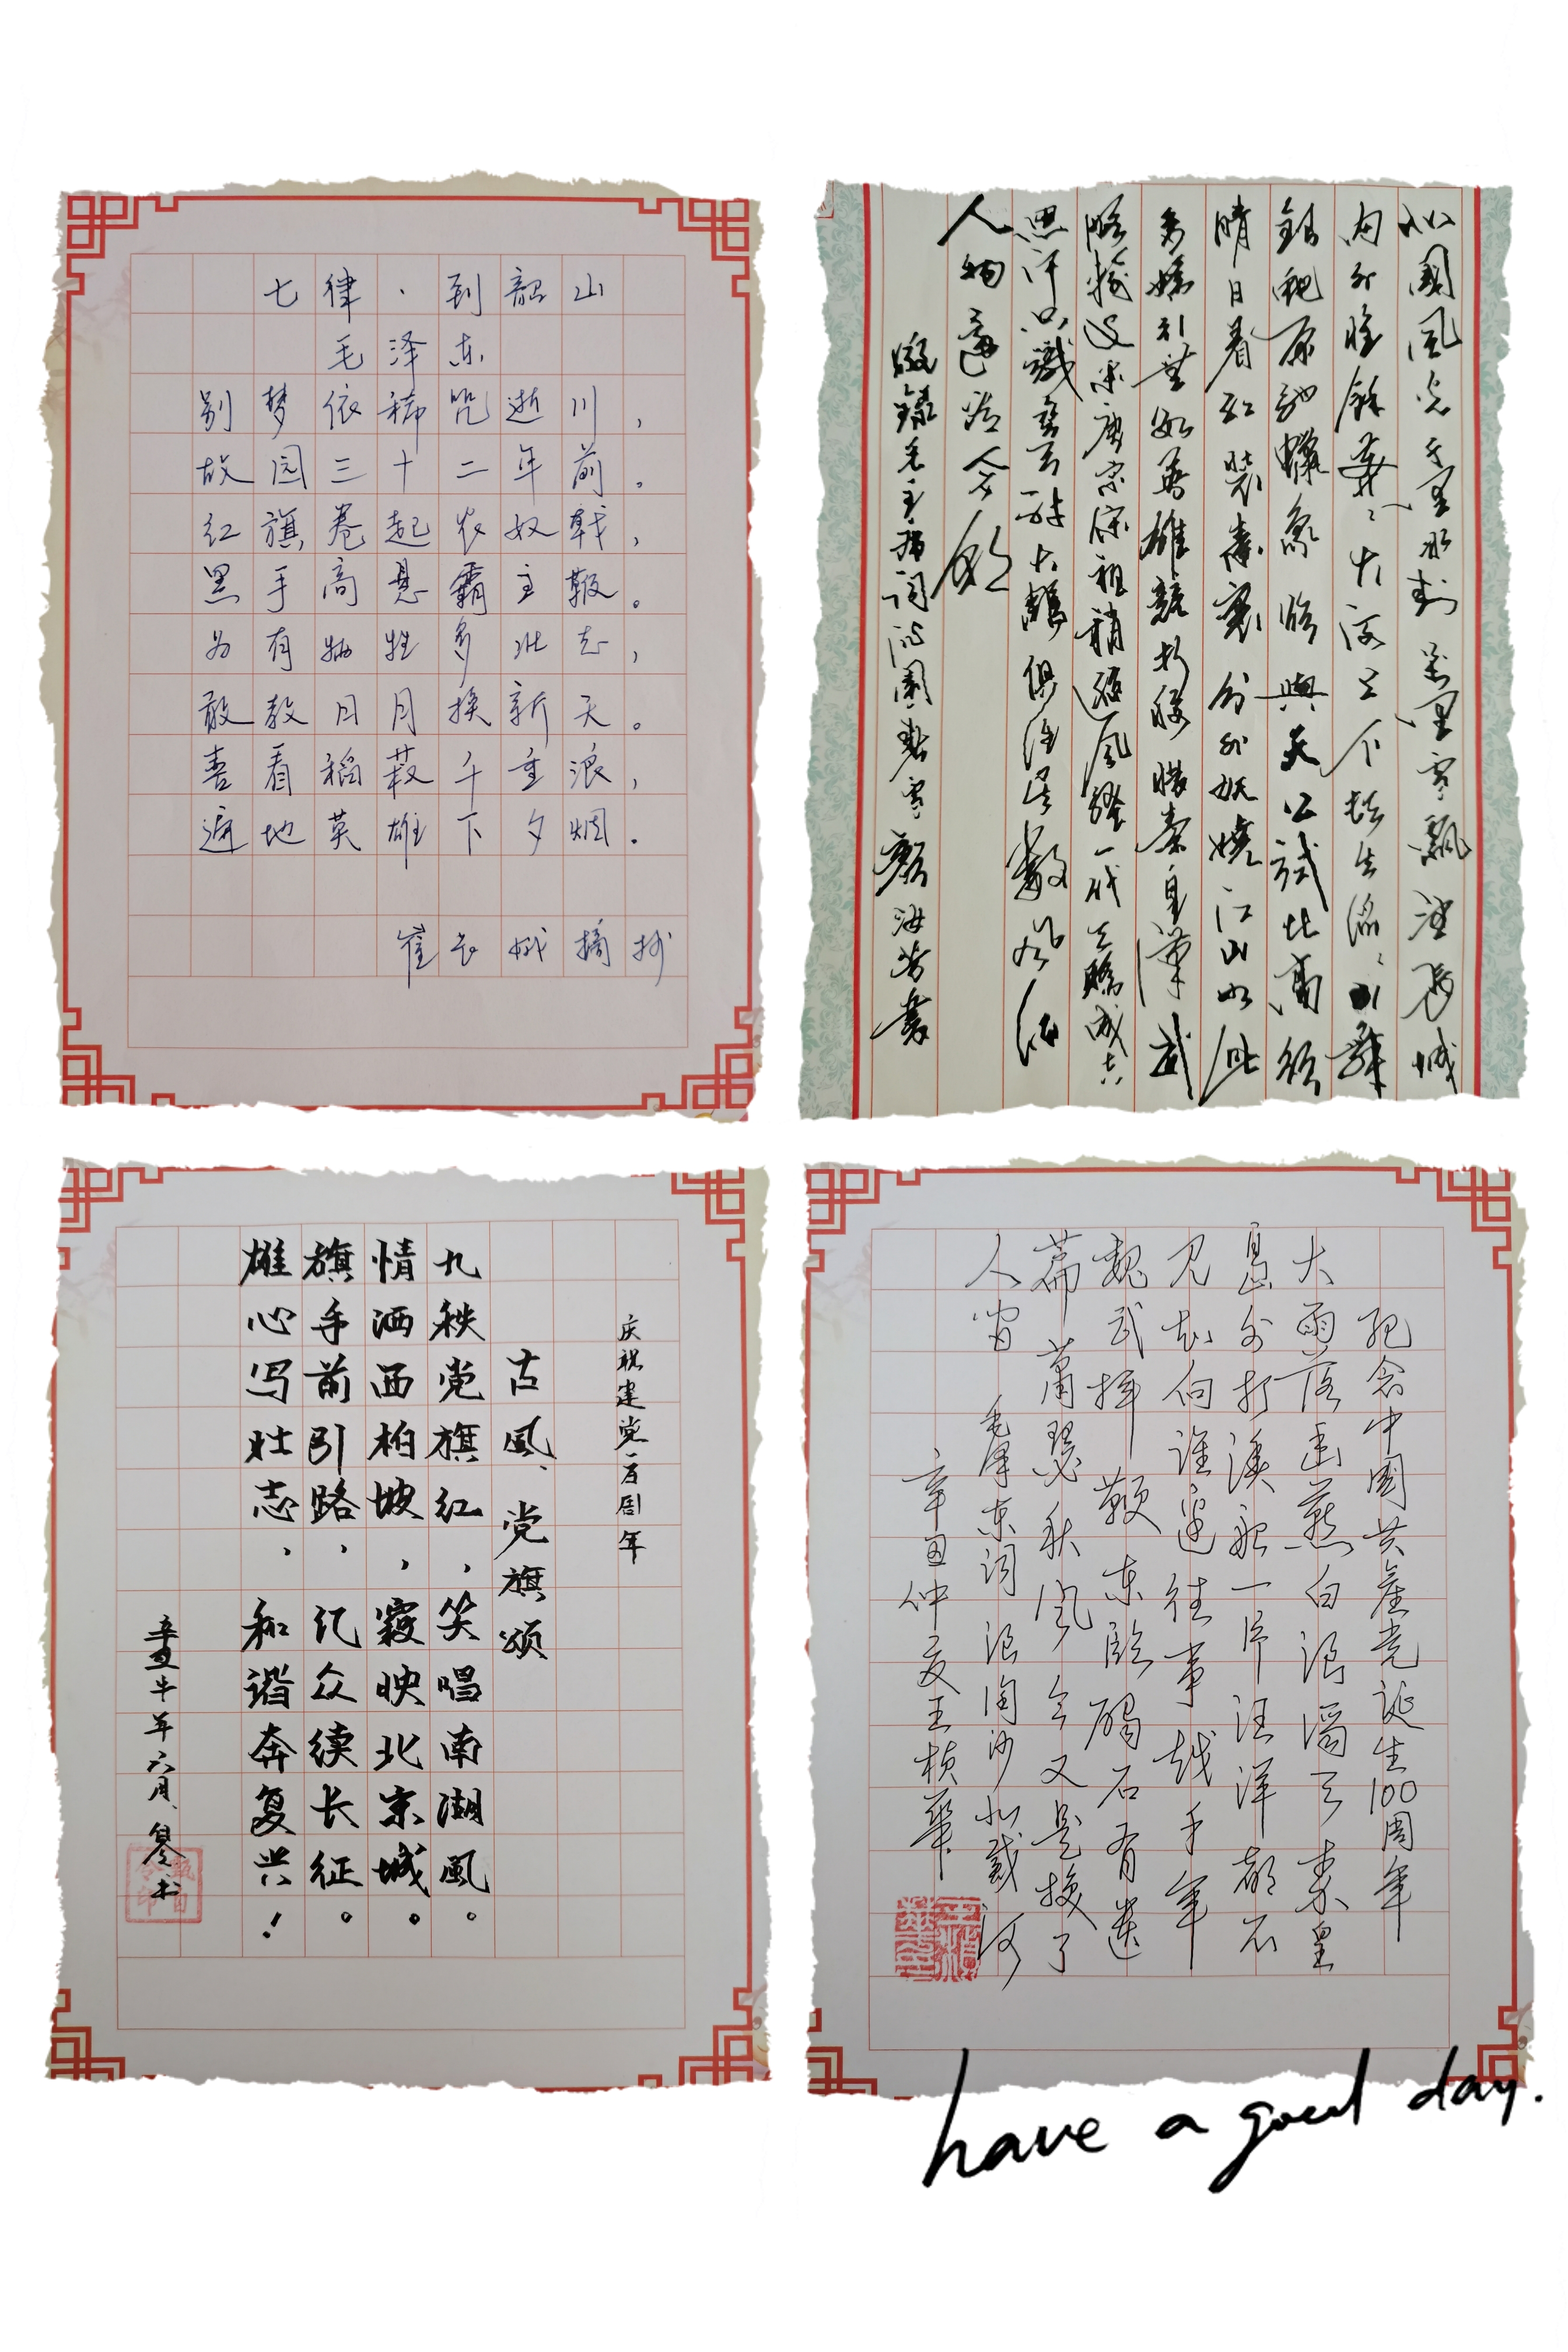 七律·到韶山
毛泽东
别梦依稀咒逝川，
故园三十二年前。
红旗卷起农奴戟，
黑手高悬霸主鞭。
为有牺牲多壮志，
敢教日月换新天。
喜看稻菽千重浪，
遍地英雄下夕烟。
崔长娥摘抄
北國風光千里冰封萬里雪飄望長城
内外惟餘莽〻大河上下頓失滔〻山舞
銀蛇原馳蠟象欲與天公試比高須
晴日看紅裝素裹分外妖嬈江山如此
多嬌引無數英雄競折腰惜秦皇漢武
略輸文采唐宗宋祖稍遜風騷一代天驕成吉
思汗只識彎弓射大鵰俱往矣數風流
人物還看今朝
敬錄毛主席詞沁園春雪 顏海芳書
庆祝建党一百周年
古風、党旗颂
九秩党旗红，笑唱南湖風。
情洒西柏坡，霞映北京城。
旗手前引路，记众续长征。
雄心写壮志，和谐奔复兴！
辛丑牛年六月、书
纪念中國共產党诞生100周年
大雨落幽燕白浪滔天秦皇
島外打漁船一片汪洋都不
見知向誰邊往事越千年
魏武揮鞭東臨碣石有遺
篇蕭瑟秋風今又是換了
人間 毛澤東詞浪淘沙北戴河
辛丑仲夏王楨華
have a good day.